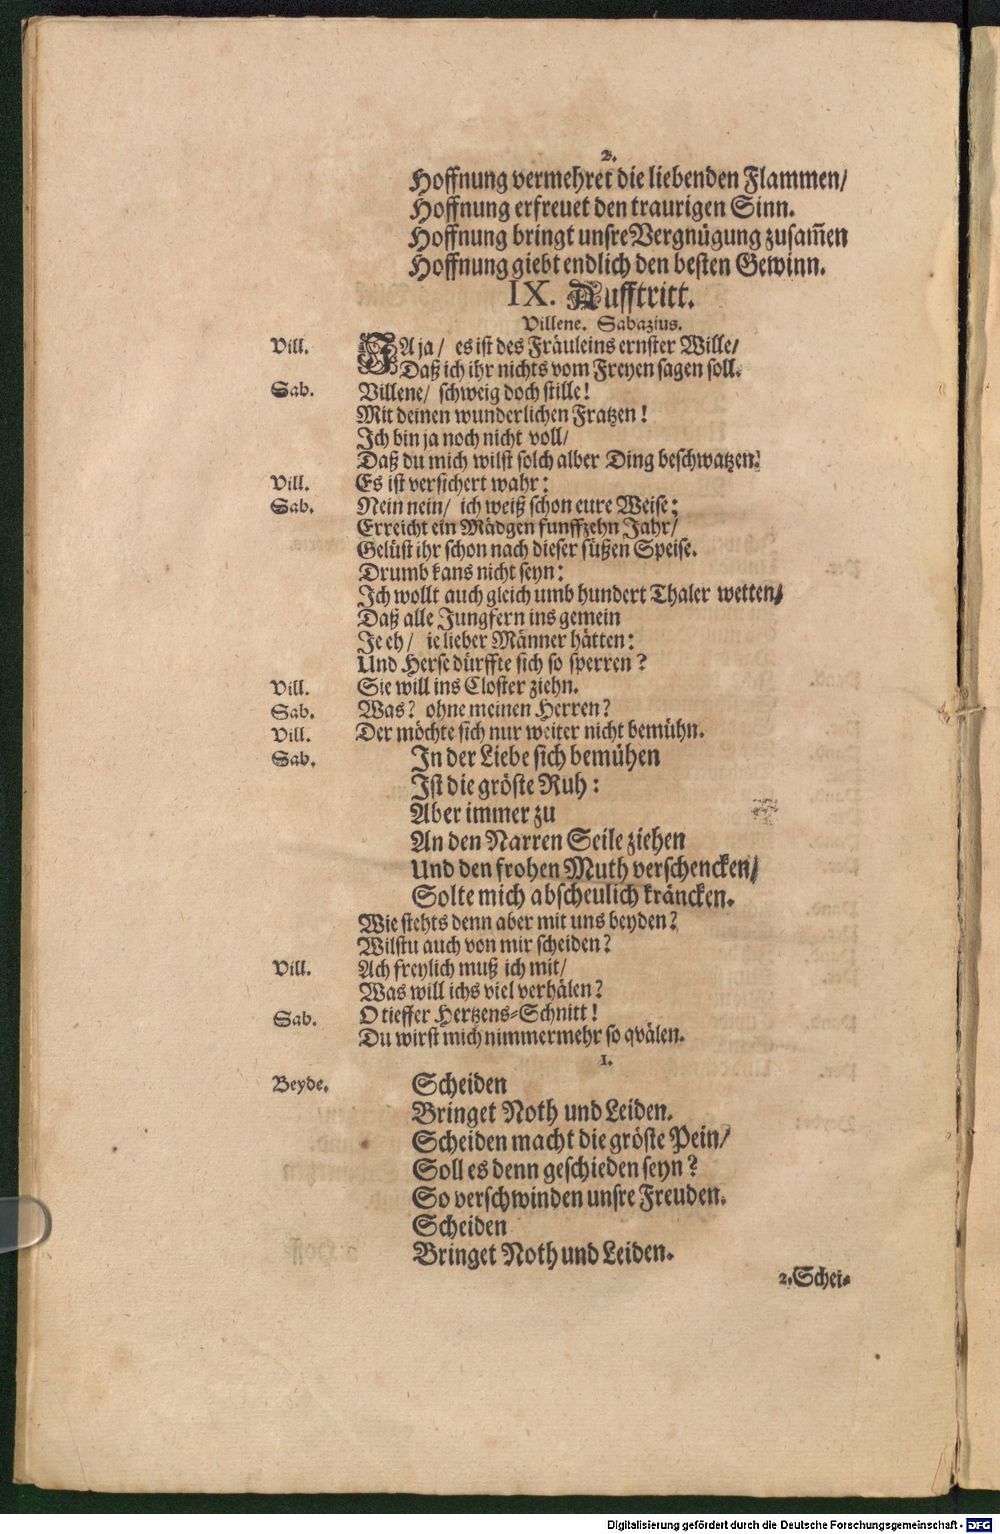 2.
Hoffnung vermehret die liebenden Flammen/
Hoffnung erfreuet den traurigen Sinn.
Hoffnung bringt unsre Vergnügung zusam̃en
Hoffnung giebt endlich den besten Gewinn.
IX. Aufftritt.
Villene. Sabazius.
Vill. JA ja/ es ist des Fräuleins ernster Wille/
Daß ich ihr nichts vom Freyen sagen soll.
Sab. Villene/ schweig doch stille!
Mit deinen wunderlichen Fratzen!
Ich bin ja noch nicht voll/
Daß du mich wilst solch alber Ding beschwatzen.
Vill. Es ist versichert wahr:
Sab. Nein nein/ ich weiß schon eure Weise;
Erreicht ein Mädgen funffzehn Jahr/
Gelüst ihr schon nach dieser süßen Speise.
Drumb kans nicht seyn:
Ich wollt auch gleich umb hundert Thaler wetten/
Daß alle Jungfern ins gemein
Je eh/ ie lieber Männer hätten:
Und Herse dürffte sich so sperren?
Vill. Sie will ins Closter ziehn.
Sab. Was? ohne meinen Herren?
Vill. Der möchte sich nur weiter nicht bemühn.
Sab. In der Liebe sich bemühen
Ist die gröste Ruh:
Aber immer zu
An den Narren Seile ziehen
Und den frohen Muth verschencken/
Solte mich abscheulich kräncken.
Wie stehts denn aber mit uns beyden?
Wilstu auch von mir scheiden?
Vill. Ach freylich muß ich mit/
Was will ichs viel verhälen?
Sab. O tieffer Hertzens-Schnitt!
Du wirst mich nimmermehr so qvälen.
1.
Beyde. Scheiden
Bringet Noth und Leiden.
Scheiden macht die gröste Pein/
Soll es denn geschieden seyn?
So verschwinden unsre Freuden.
Scheiden
Bringet Noth und Leiden.
2. Schei-
Digitalisierung gefördert durch die Deutsche Forschungsgemeinschaft - DFG